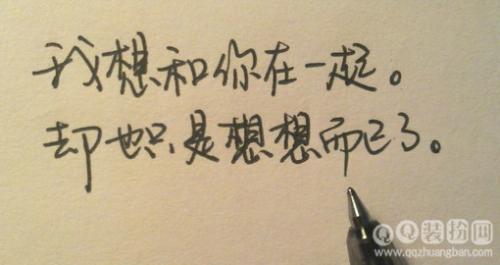 我想和你在一起。
却也只是想想而已了。
QQ装扮网
www.qqzhuangban.com